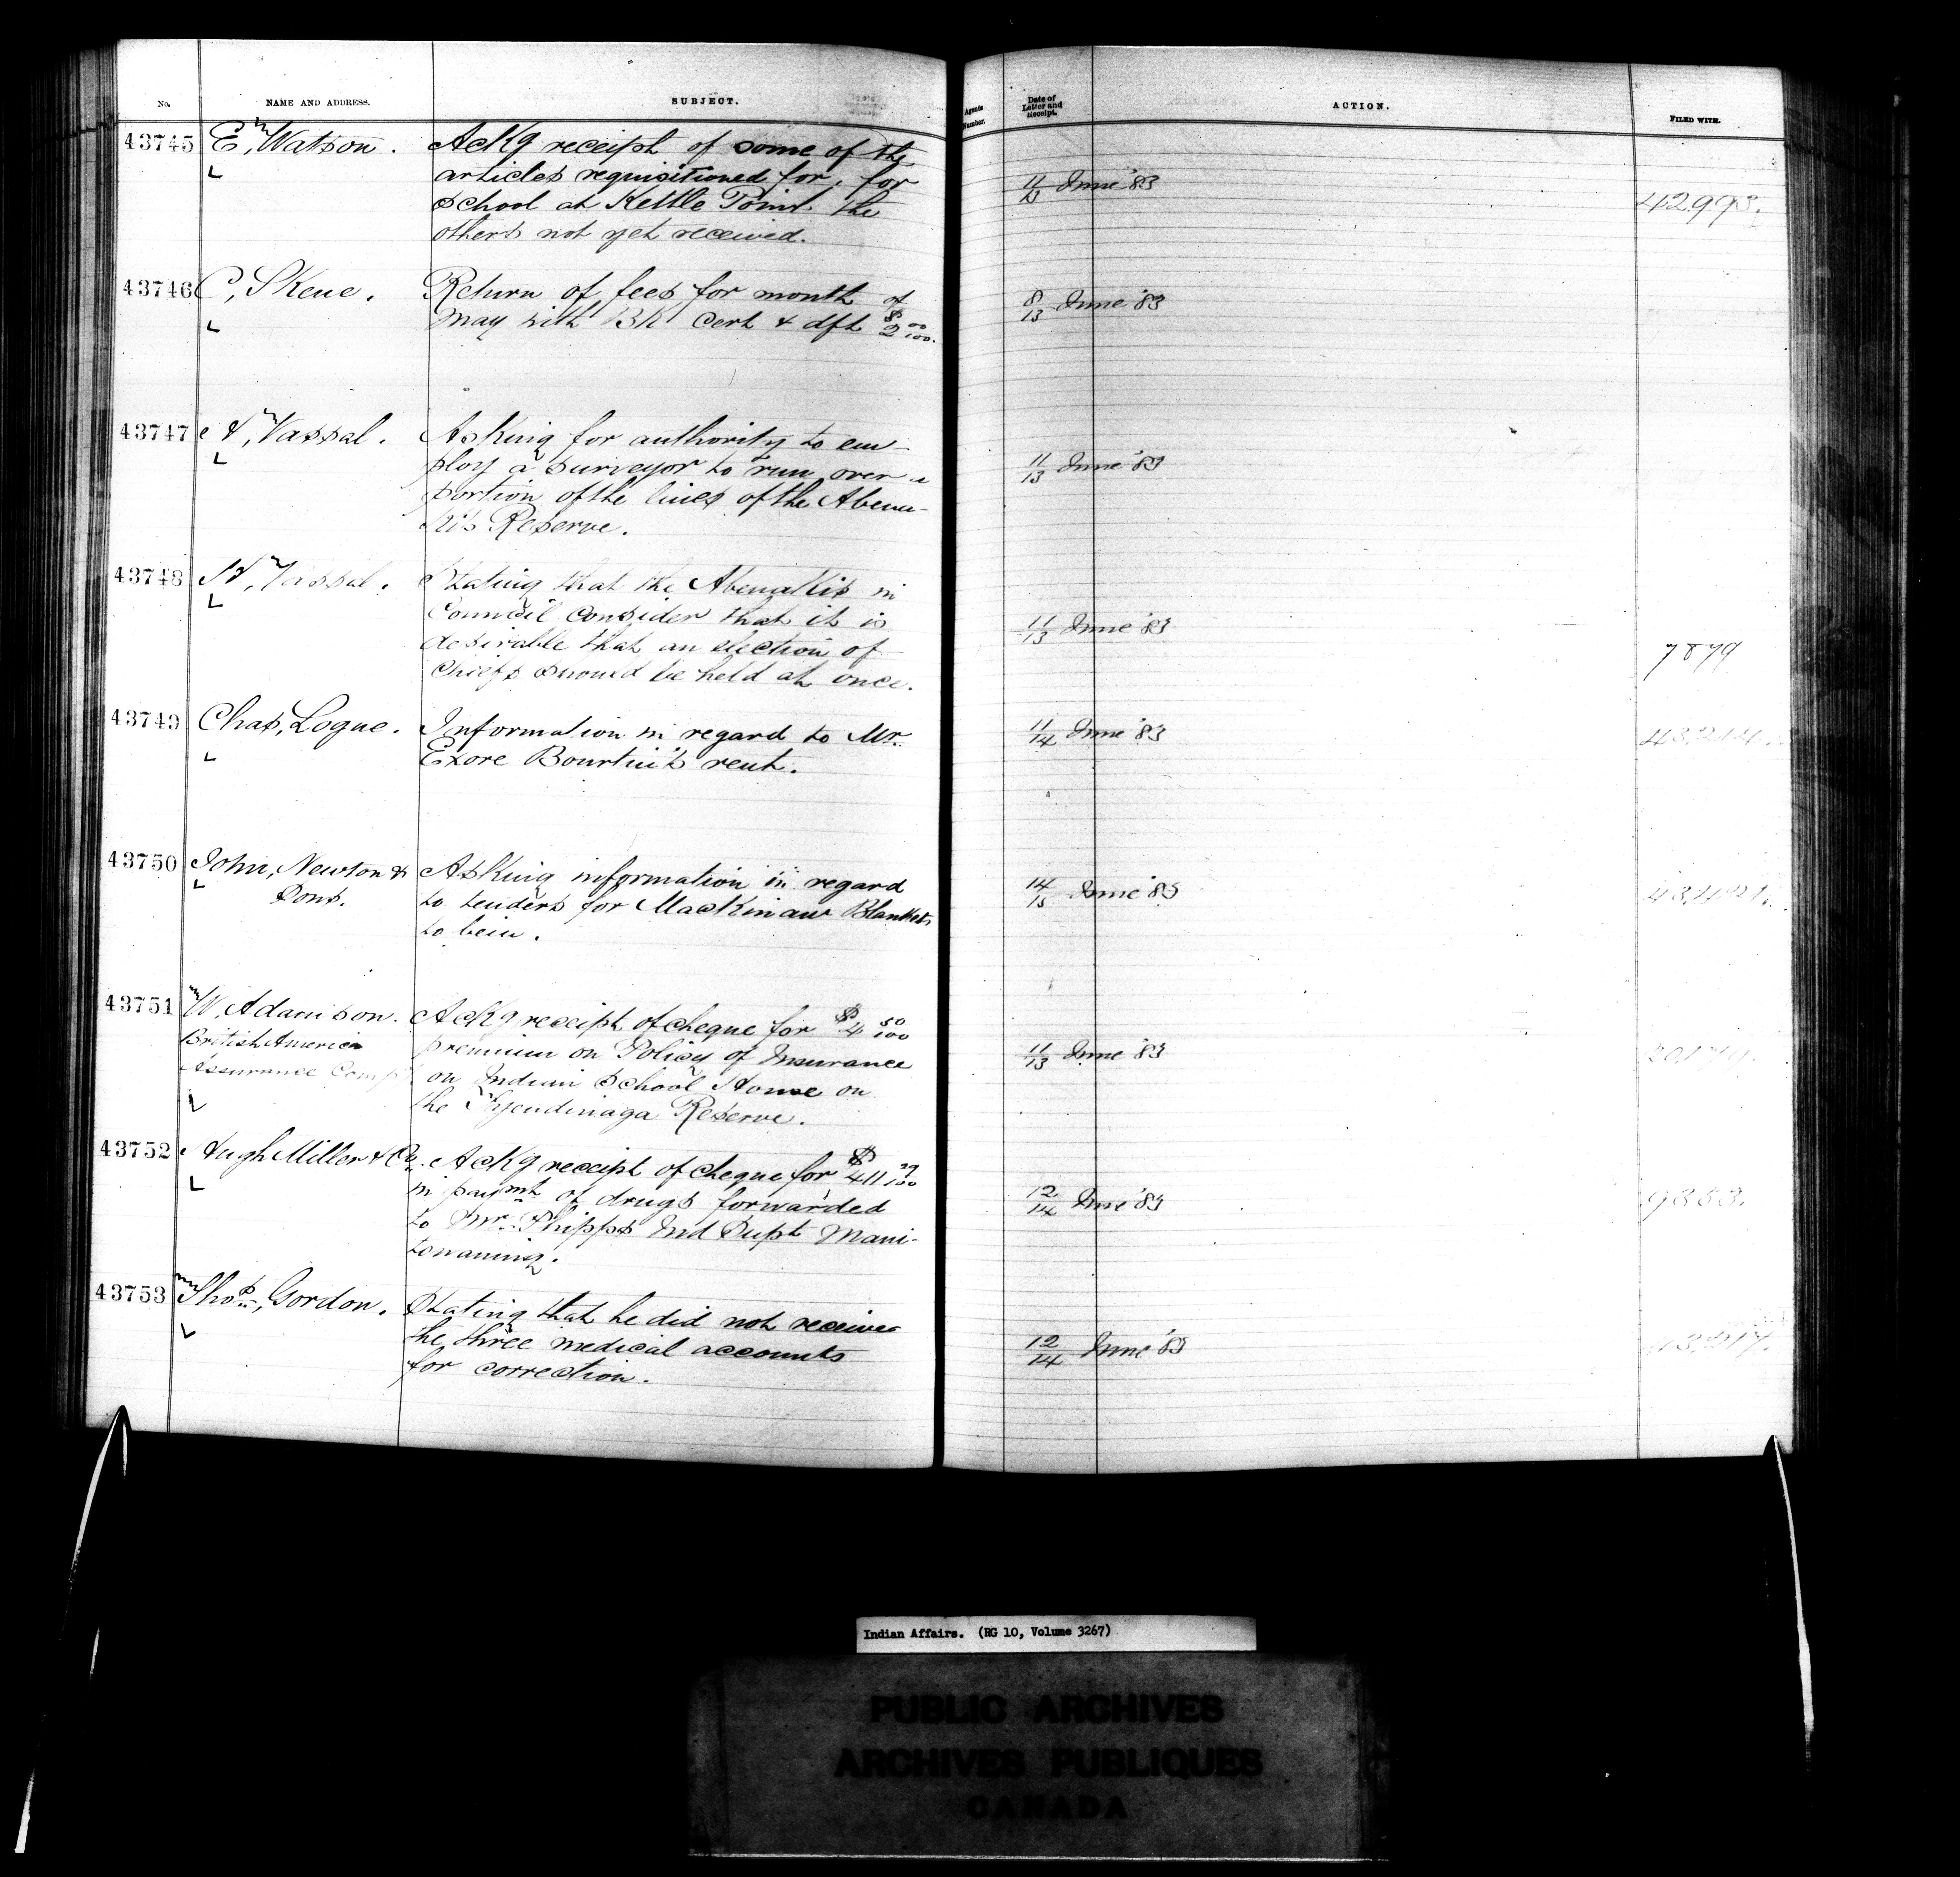 No.
NAME AND ADDRESS.
SUBJECT.
Agents Number.
Date of Letter and Receipt.
ACTION.
FILED WITH.
43745
E, Watson.
Ackg receipt of some of the
articles requisitioned for, for
School at Kettle Point the
others not yet received.
June '83
42,993.
43746
C, Skene.
Return of fees for month of
May with BK Cert & dft $2 00/100.
8/13 June '83
43747
H, Vassal.
Asking for authority to em-
ploy a surveyor to run over a
portion of the lines of the Abena-
kis Reserve.
11/13 June '83
43748
H, Vassal.
Stating that the Abenakis in
Council consider that it is
desirable that an election of
Chiefs should be held at once.
11/13 June '83
7879
43749
Chas, Logue.
Information in regard to Mr.
Exore rent.
11/14 June '83
43,214.
43750
John, Newton &
Sons.
Asking information in regard
to tenders for Mackinaw Blankets
to
14/15 June '83
43751
W, Adamson.
British America
Assurance Comp
Ackg receipt of cheque for $4 50/100
premium on Policy of Insurance
on Indian School House on
the Tyendinaga Reserve.
11/13 June '83
43752
Hugh Miller & Co.
Ackg receipt of cheque for $411 29/100
in paymt of drugs forwarded
to Mr. Phipps Ind Supt Mani-
towaning.
12/14 June '83
9353.
43753
Thos, Gordon.
Stating that he did not receive
the three medical accounts
for correction.
12/14 June '83
Indian Affairs. (RG 10, Volume 3267)
PUBLIC ARCHIVES
ARCHIVES PUBLIQUES
CANADA